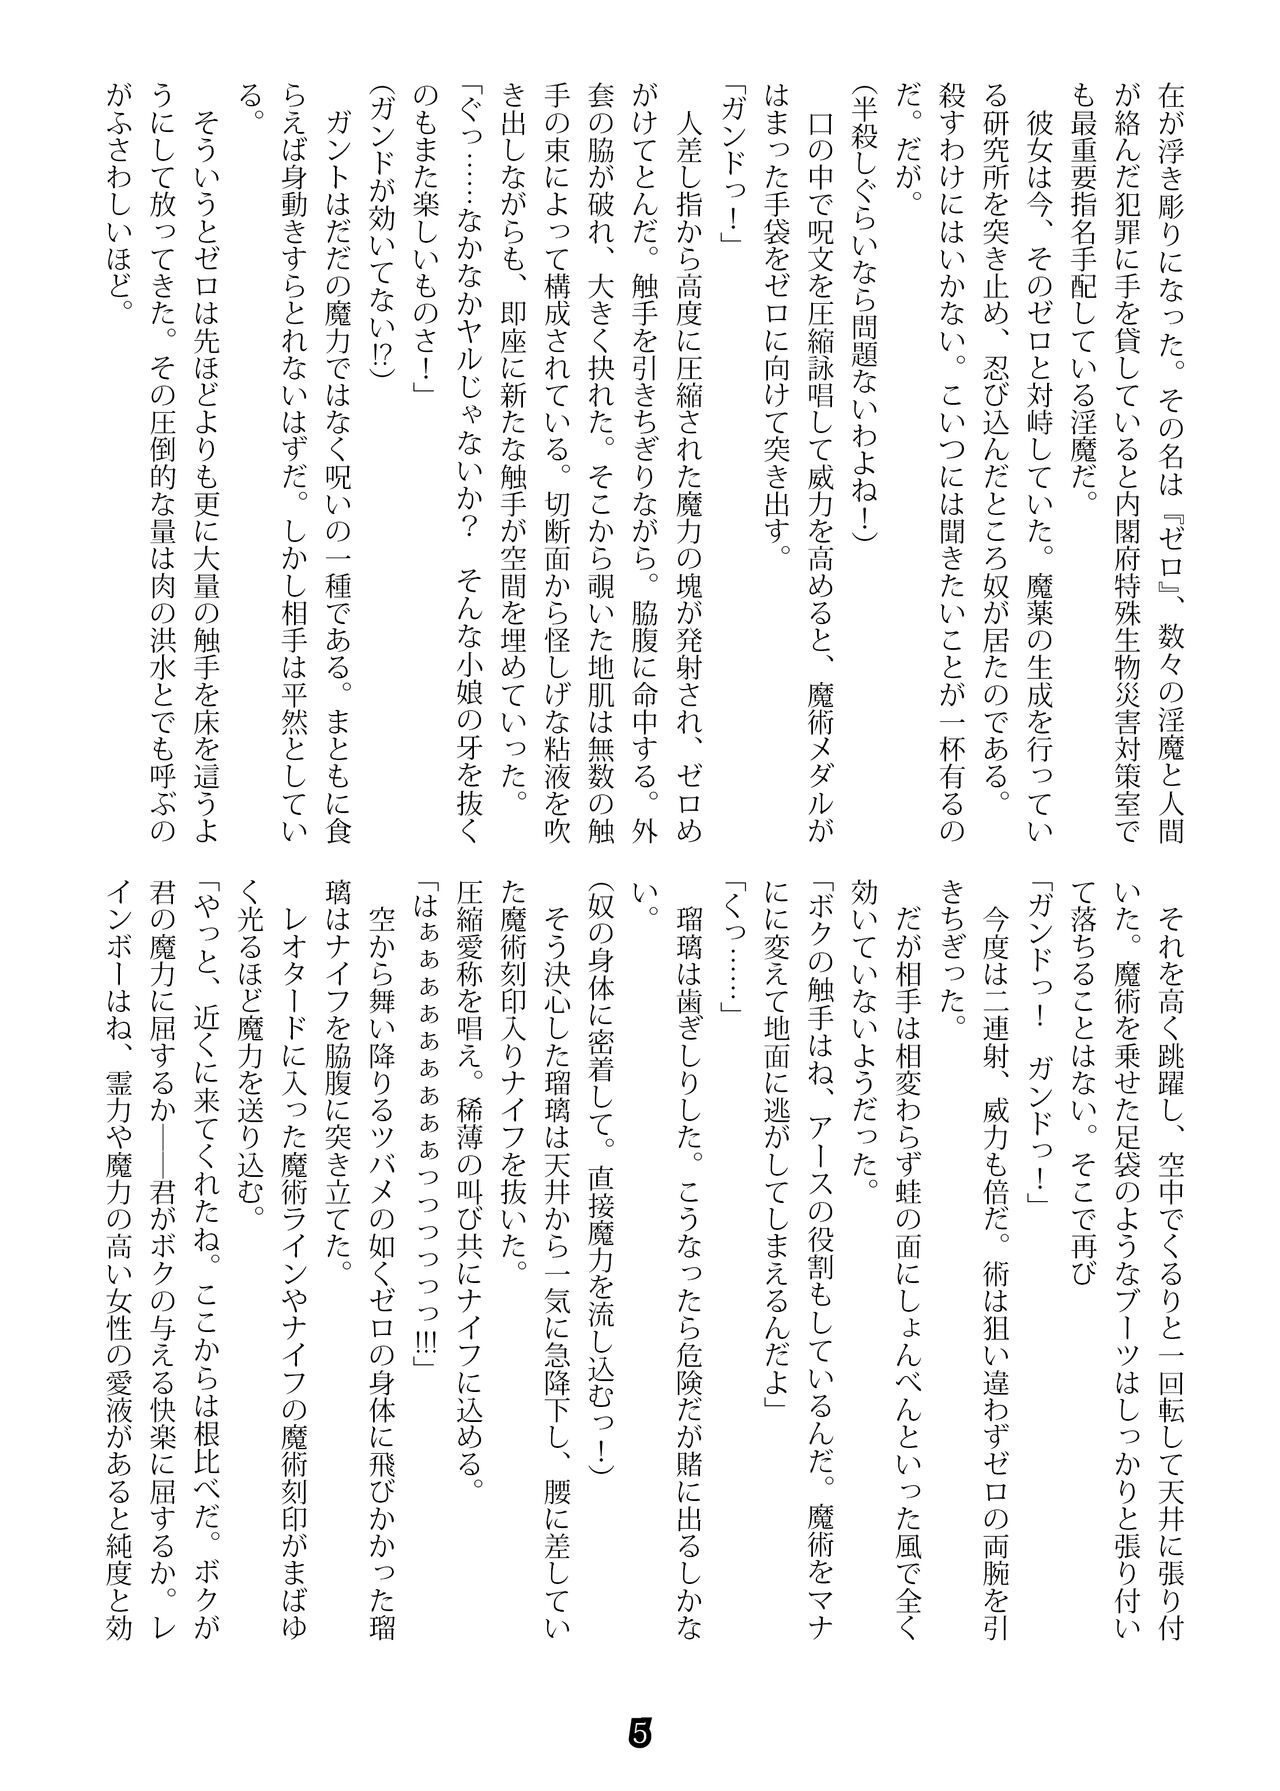 在が浮き彫りになった。その名は『ゼロ』、数々の淫魔と人間
が絡んだ犯罪に手を貸していると内閣府特殊生物災害対策室で
も最重要指名手配している淫魔だ。
彼女は今、そのゼロと対峙していた。魔薬の生成を行ってい
る研究所を突き止め、忍び込んだところ奴が居たのである。
殺すわけにはいかない。こいつには聞きたいことが一杯有るの
だ。だが。
(半殺しぐらいなら問題ないわよね！)
口の中で呪文を圧縮詠唱して威力を高めると、魔術メダルが
はまった手袋をゼロに向けて突き出す。
「ガンドっ！」
人差し指から高度に圧縮された魔力の塊が発射され、ゼロめ
がけてとんだ。触手を引きちぎりながら。脇腹に命中する。外
套の脇が破れ、大きく抉れた。そこから覗いた地肌は無数の触
手の束によって構成されている。切断面から怪しげな粘液を吹
き出しながらも、即座に新たな触手が空間を埋めていった。
「ぐっ……なかなかヤルじゃないか？　そんな小娘の牙を抜く
のもまた楽しいものさ！」
(ガンドが効いてない!?)
ガントはだだの魔力ではなく呪いの一種である。まともに食
らえば身動きすらとれないはずだ。しかし相手は平然としてい
る。
そういうとゼロは先ほどよりも更に大量の触手を床を這うよ
うにして放ってきた。その圧倒的な量は肉の洪水とでも呼ぶの
がふさわしいほど。
それを高く跳躍し、空中でくるりと一回転して天井に張り付
いた。魔術を乗せた足袋のようなブーツはしっかりと張り付い
て落ちることはない。そこで再び
「ガンドっ！　ガンドっ！」
今度は二連射、威力も倍だ。術は狙い違わずゼロの両腕を引
きちぎった。
だが相手は相変わらず蛙の面にしょんべんといった風で全く
効いていないようだった。
「ボクの触手はね、アースの役割もしているんだ。魔術をマナ
にに変えて地面に逃がしてしまえるんだよ」
「くっ……」
瑠璃は歯ぎしりした。こうなったら危険だが賭に出るしかな
い。
(奴の身体に密着して。直接魔力を流し込むっ！)
そう決心した瑠璃は天井から一気に急降下し、腰に差してい
た魔術刻印入りナイフを抜いた。
圧縮愛称を唱え。稀薄の叫び共にナイフに込める。
「はぁぁぁぁぁぁぁぁぁっっっっっっ!!!」
空から舞い降りるツバメの如くゼロの身体に飛びかかった瑠
璃はナイフを脇腹に突き立てた。
レオタードに入った魔術ラインやナイフの魔術刻印がまばゆ
く光るほど魔力を送り込む。
「やっと、近くに来てくれたね。ここからは根比べだ。ボクが
君の魔力に屈するか――君がボクの与える快楽に屈するか。レ
インボーはね、霊力や魔力の高い女性の愛液があると純度と効
5